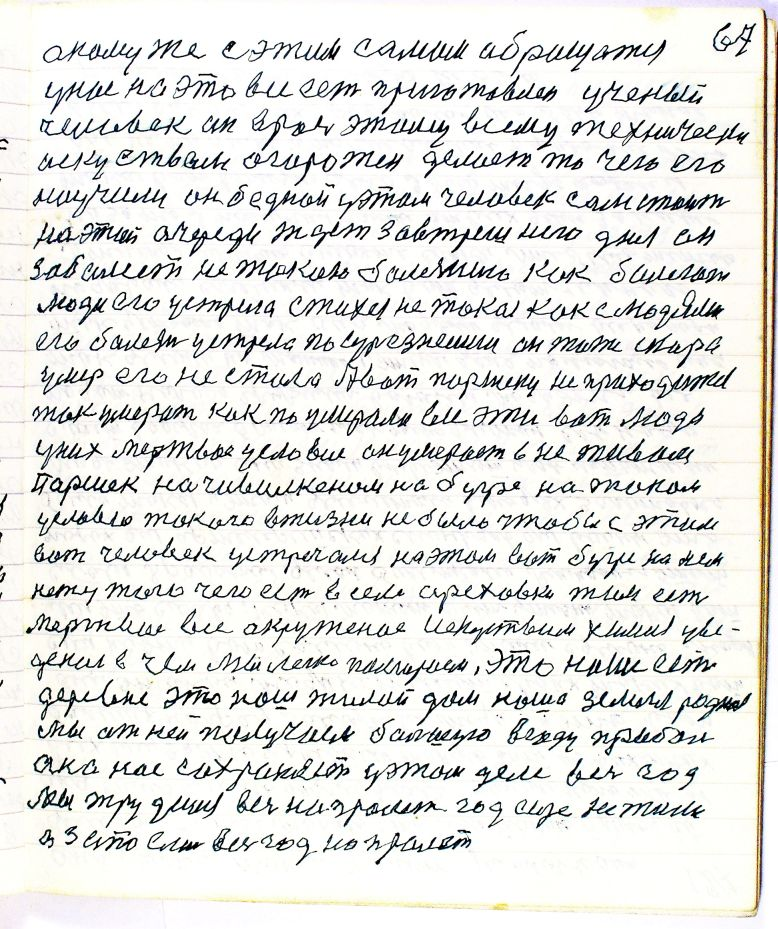 67
аному же с этим самим обращатся
унае на это все ест приготовлен ученый
человек он врач этому всему технически
искуствам огорожен делает то чего его
научили он бедной у этом человек сам стоит
на этой очереди ждет завтрешнего дня он
заболеет не такою болезнию как болеют
люди его устрела стихея не такая как с людями
его болезн устрела по сурезнешии он тоже скора
умер его не стала А вот паршеку не приходится
так умерат как поумирали все эти вот люди
у них мертвае условие он умерает в не живом
Паршек на чивилкеном на бугре на таком
условию такого в жизни не было чтобы с этим
вот человек устречался на этом вот бугре на нем
нету того чего ест в селе ореховки там ест
мертвае все окружение искуством химия уве-
дения в чем мы легко помираем, это наше ест
деревне это наш жилой дом наша земля родная
мы от ней получаем большую везду прибол
она нас сохраняет у этом деле вес год
мы трудимся вес напролет год еще не жили
за это сам вес год напролет